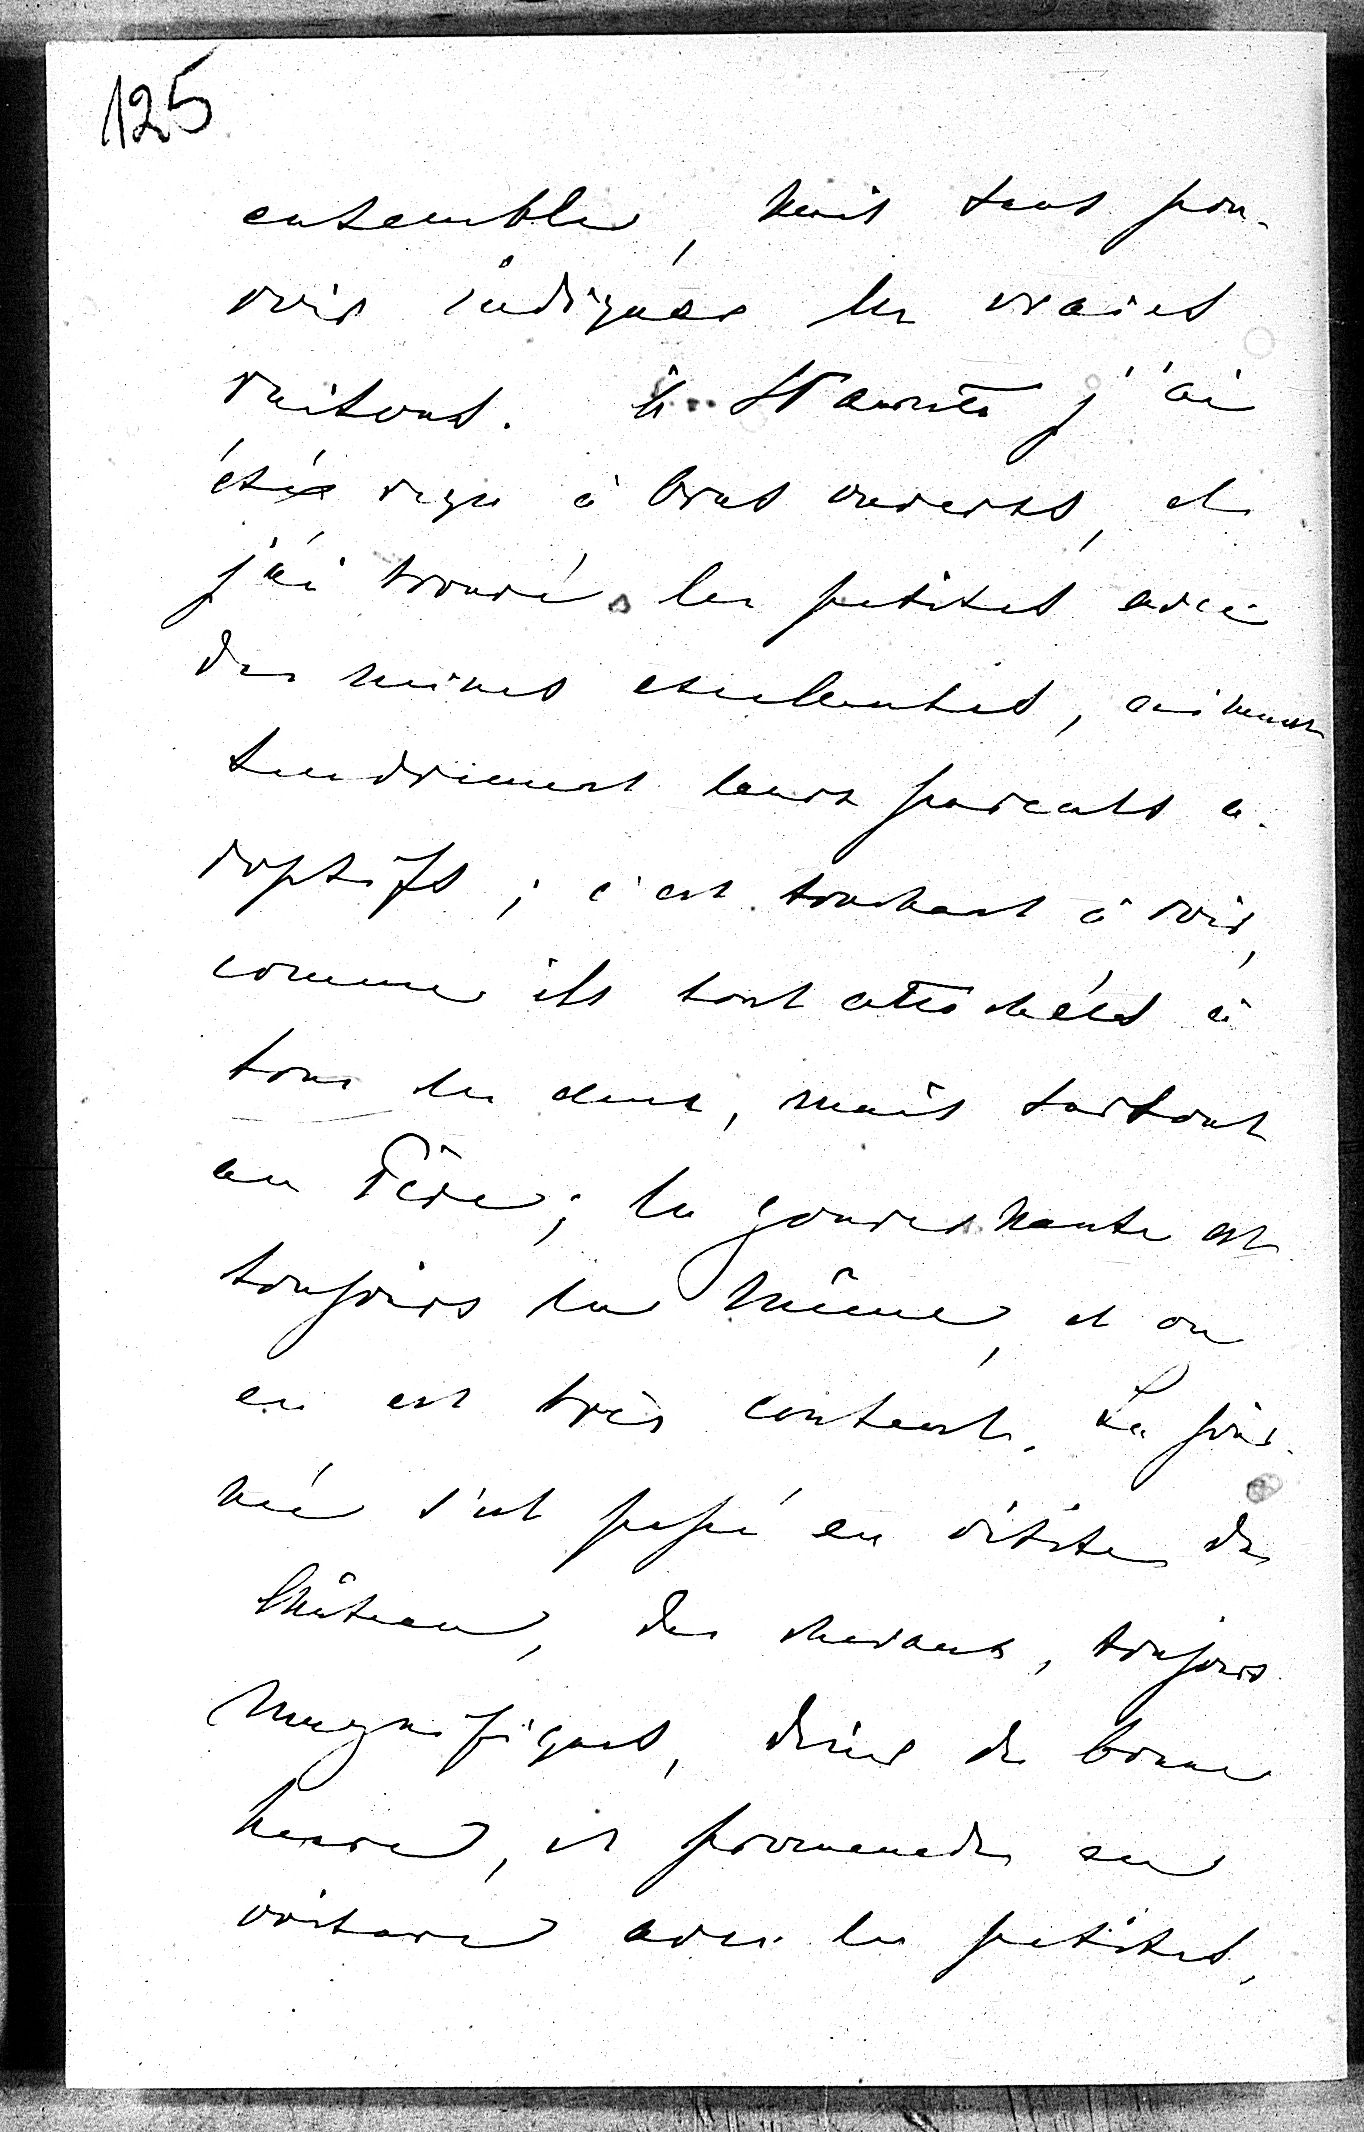 125
ensemble, mais sans pou-
voir indiquer les vraies
raisons. à j'ai
été reçu à bras ouverts, et
j'ai trouvé les petites avec
des mines excellentes, aimant
tendrement leurs parents a-
doptifs; c'est touchant à voir,
comme ils sont attachées à
tous les deux, mais surtout
au Père; la gouvernante est
toujours la même, et on
en est très content. La jour-
née s'est passé en visite du
Château, des chevaux, toujours
magnifiques, dîner de bonne
heure, et promenade en
voiture avec les petites,